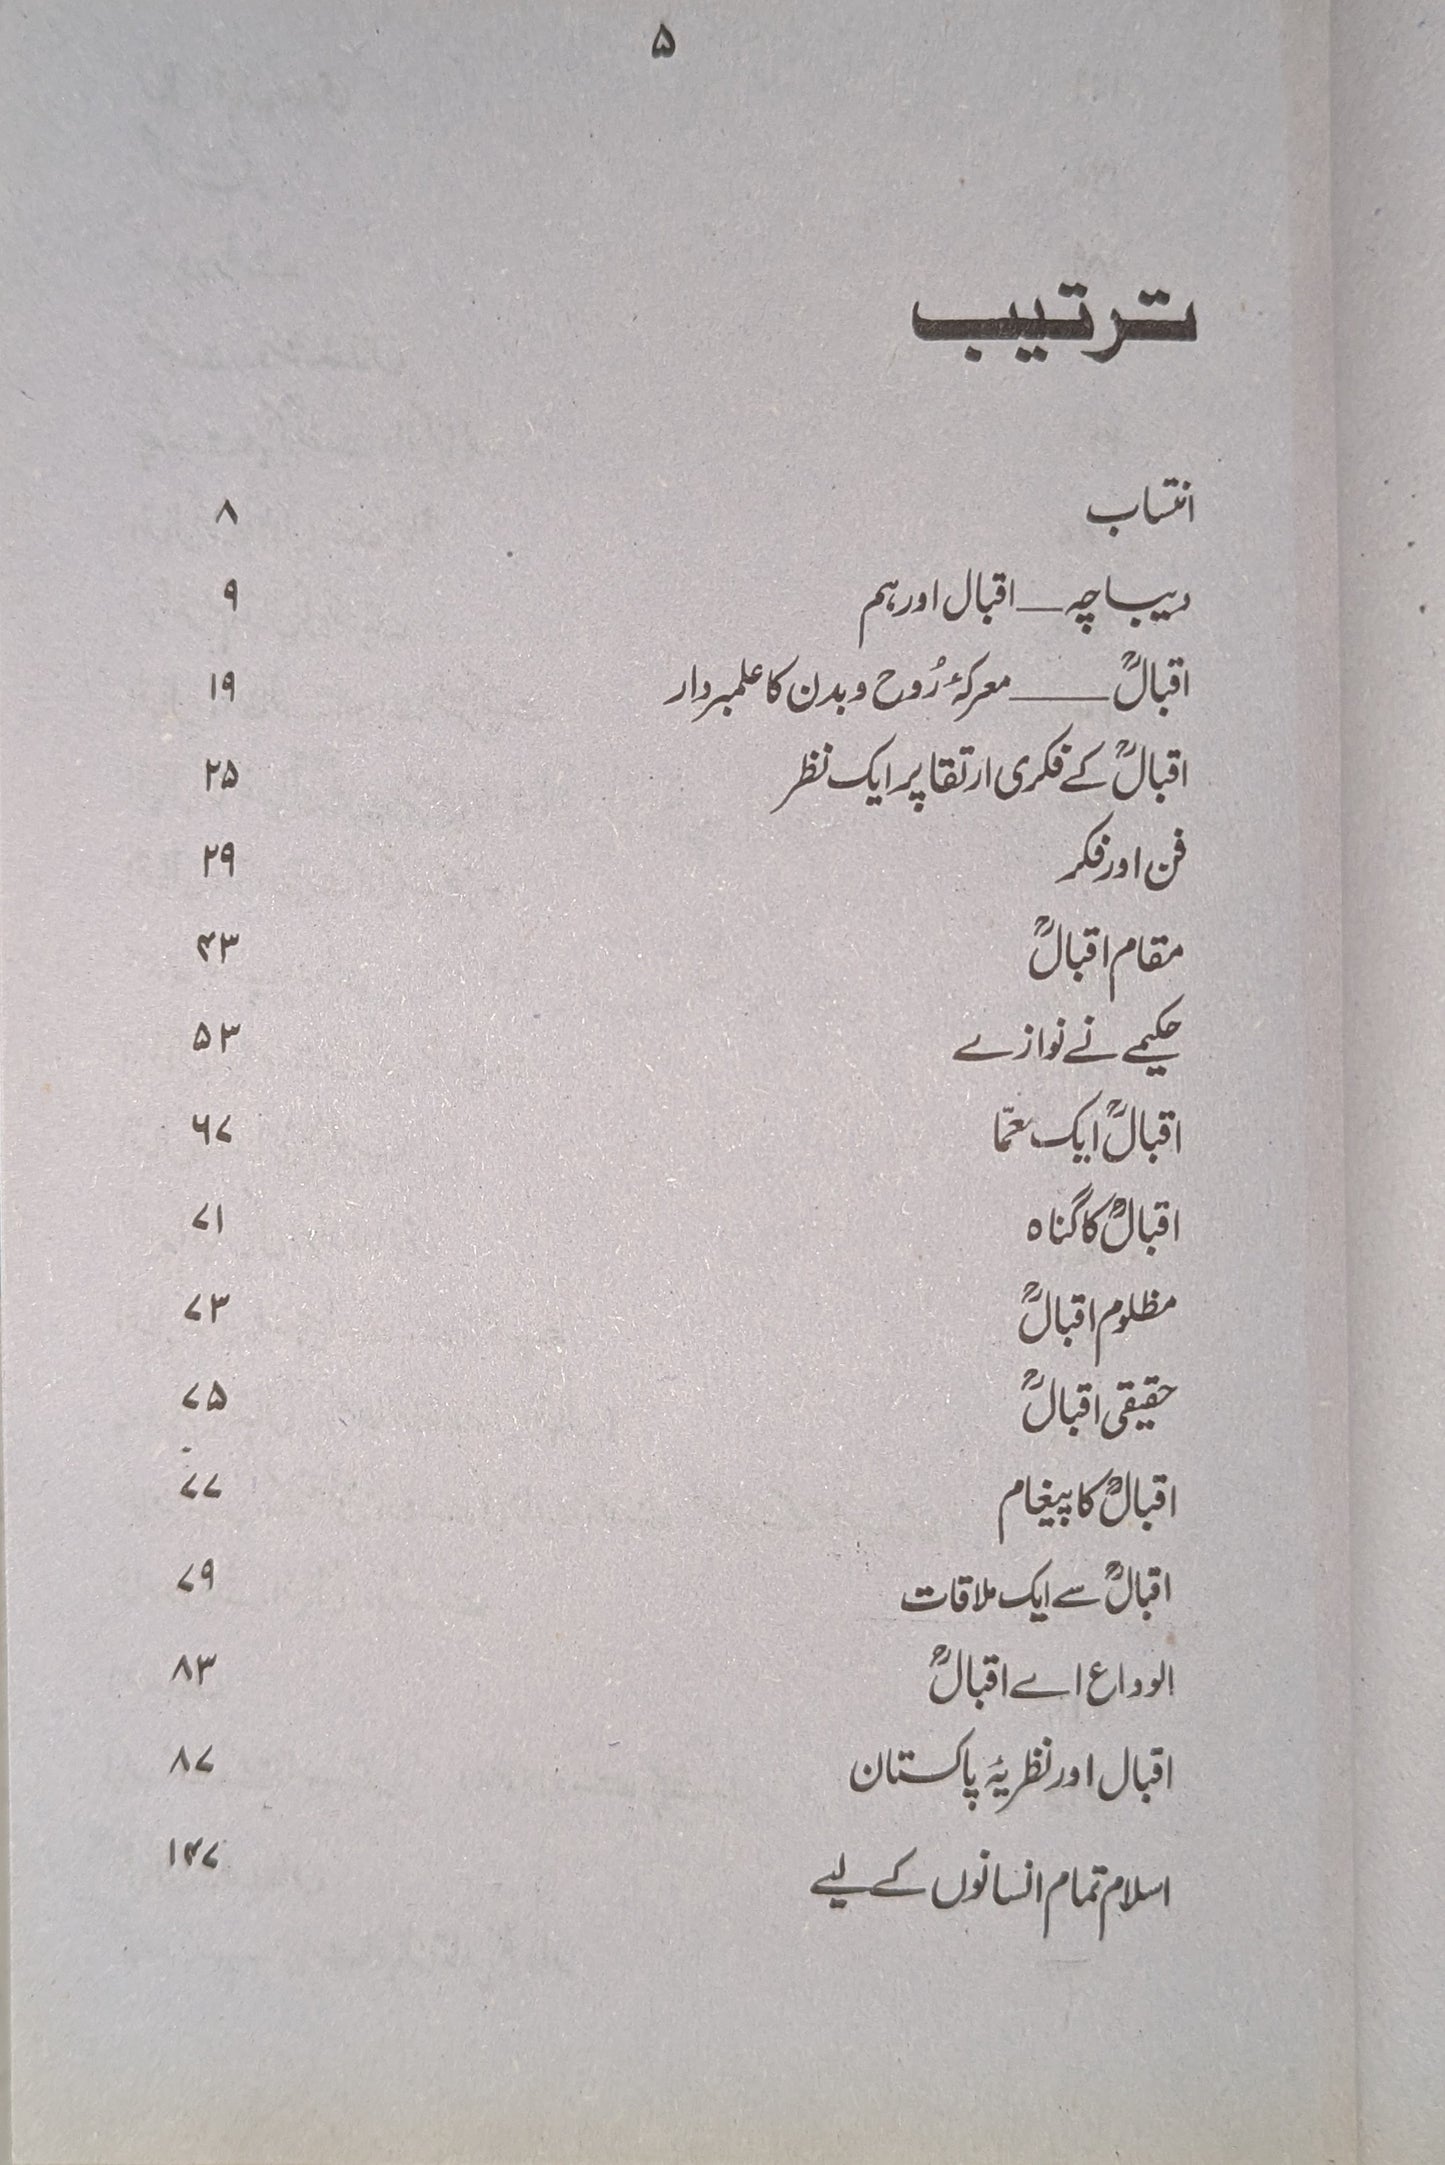 ۵
ترتیب
انتساب ۸
دیباچہ ــــ اقبال اور ہم ۹
اقبالؒ ــــــــ معرکۂ رُوح و بدن کا علمبردار ۱۹
اقبالؒ کے فکری ارتقا پر ایک نظر ۲۵
فن اور فکر ۲۹
مقام اقبالؒ ۴۳
حکیمے نے نوازے ۵۳
اقبالؒ ایک معمّا ۶۷
اقبالؒ کا گناہ ۷۱
مظلوم اقبالؒ ۷۳
حقیقی اقبالؒ ۷۵
اقبالؒ کا پیغام ۷۷
اقبالؒ سے ایک ملاقات ۷۹
الوداع اے اقبالؒ ۸۳
اقبال اور نظریۂ پاکستان ۸۷
اسلام تمام انسانوں کے لیے ۱۴۷